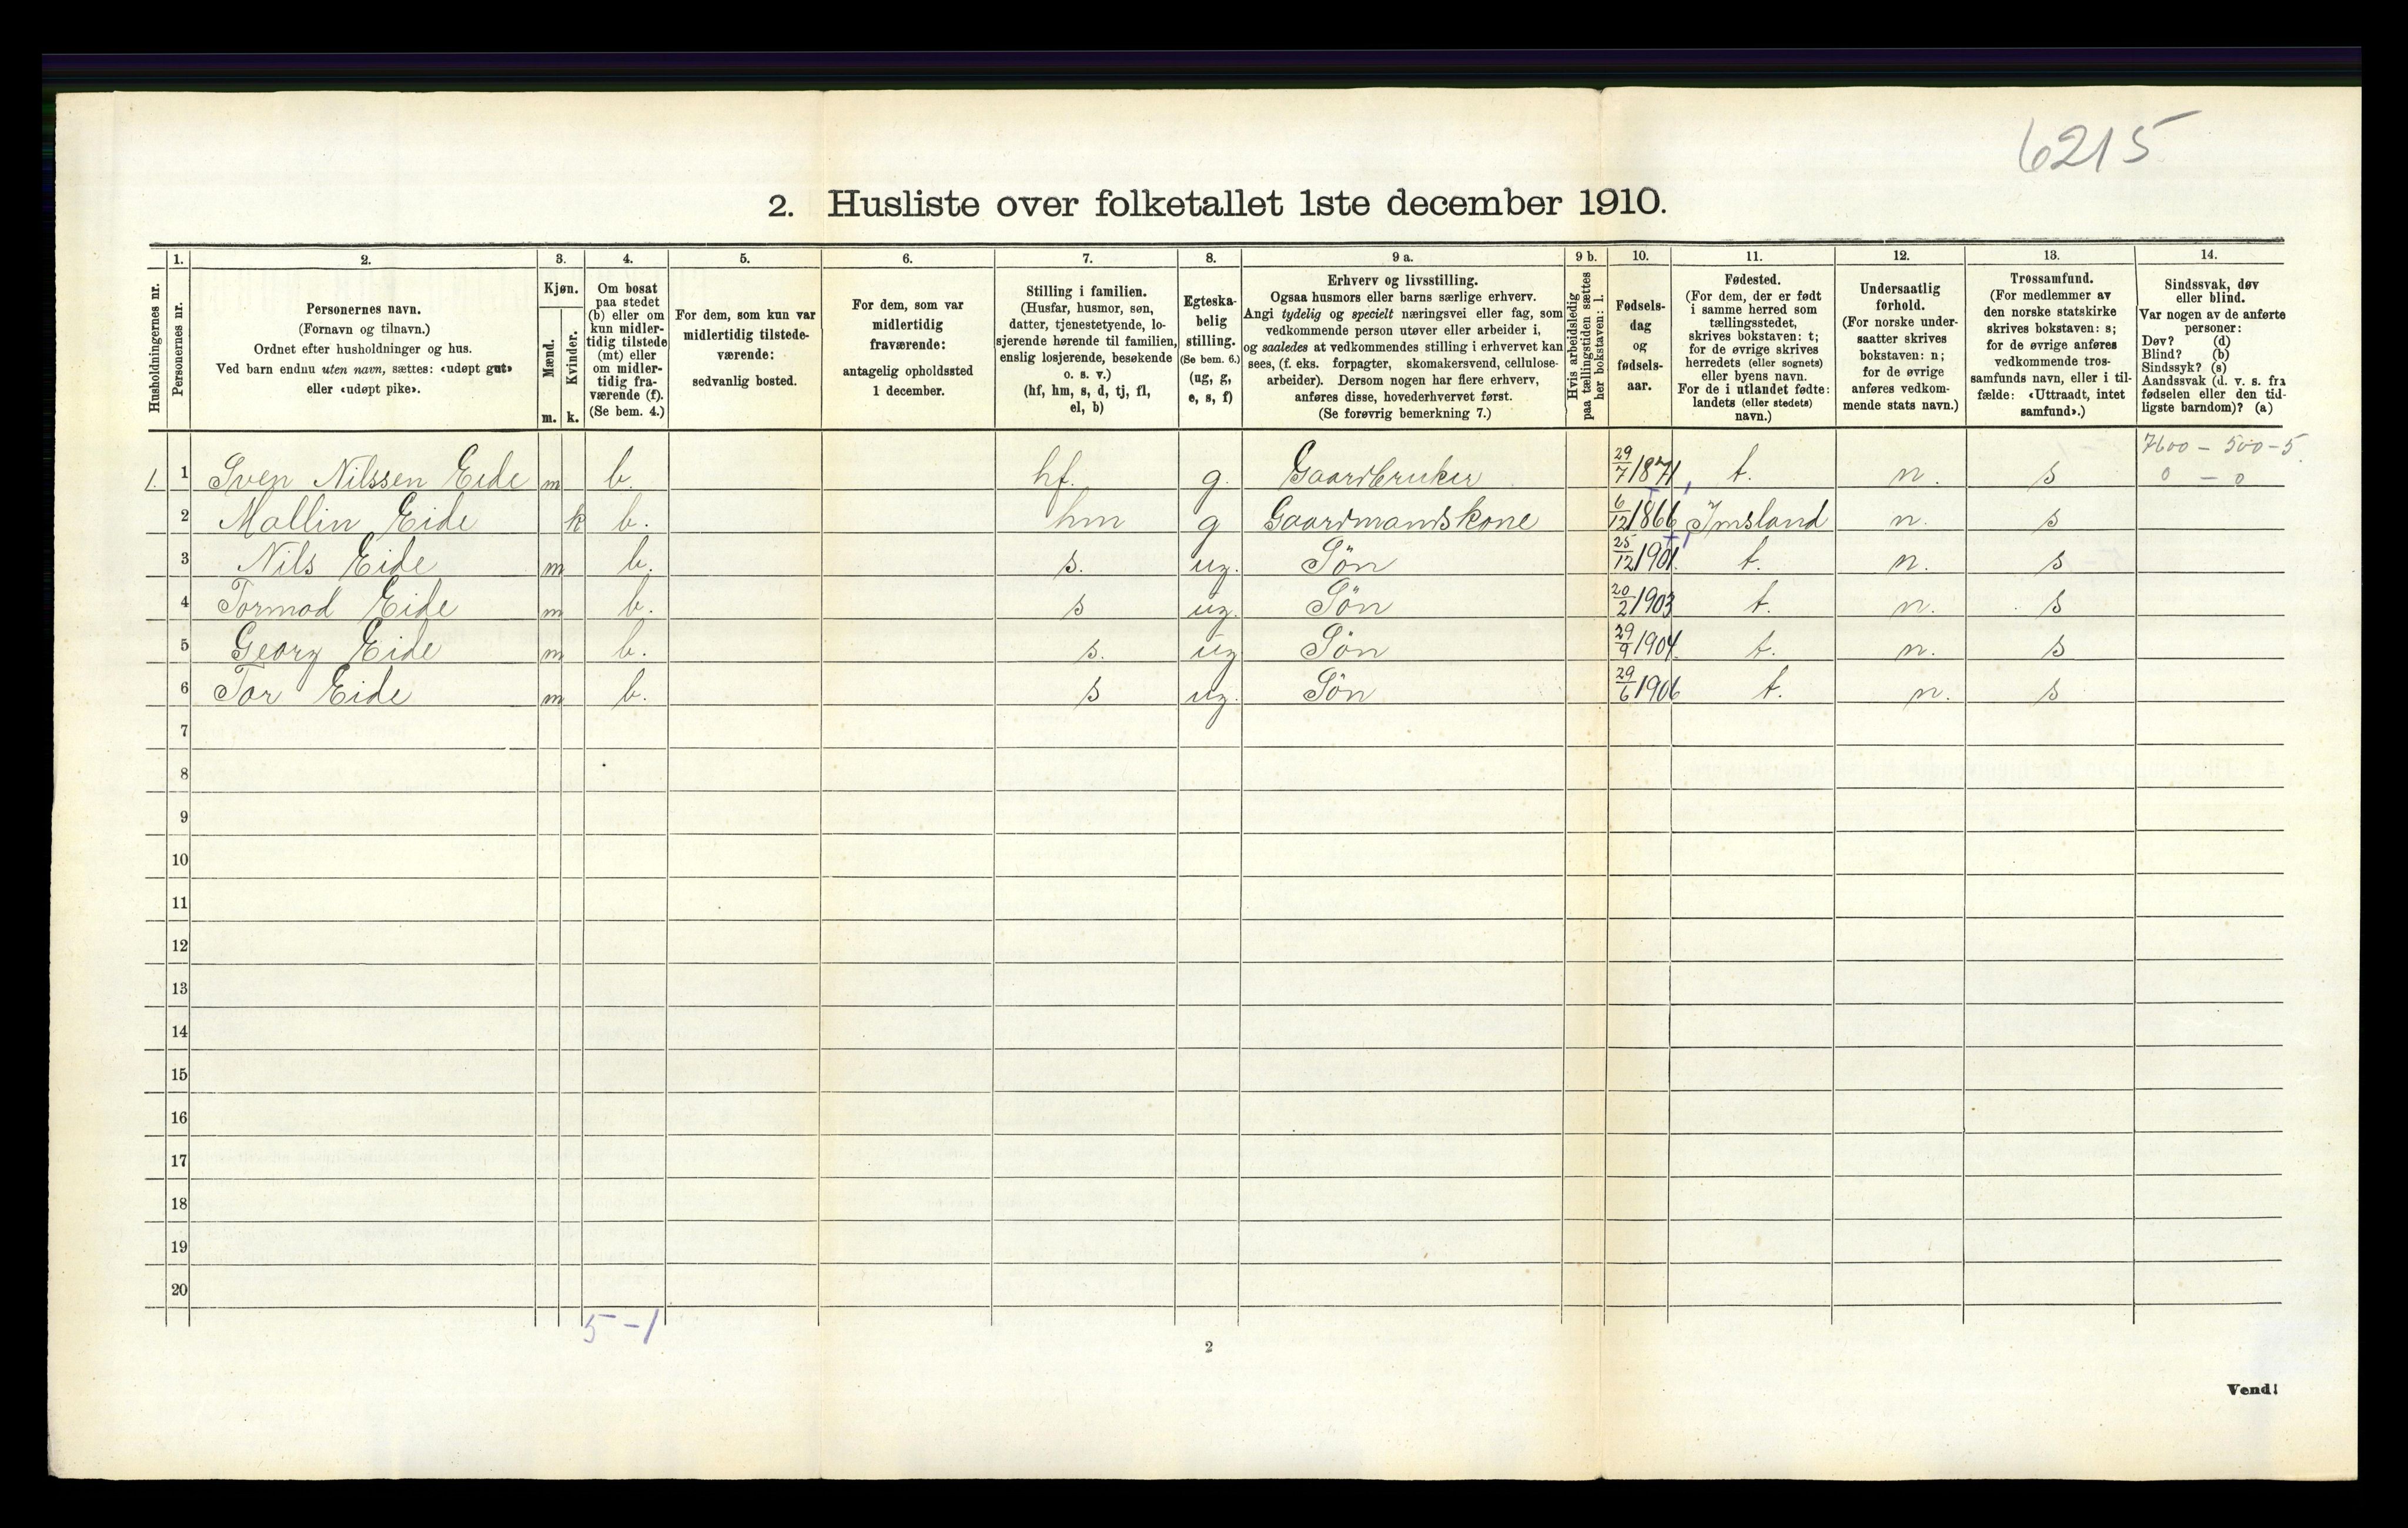 6215
2. Husliste over folketallet 1ste december 1910.
Husholdningernes nr.
1.
Personernes nr.
2.
Personernes navn.
(Fornavn og tilnavn.)
Ordnet efter husholdninger og hus.
Ved barn endnu uten navn, sættes: «udøpt gut»
eller «udøpt pike».
3.
Kjøn.
Mænd.
m.
Kvinder.
k.
4.
Om bosat
paa stedet
(b) eller om
kun midler-
tidig tilstede
(mt) eller
om midler-
tidig fra-
værende (f).
(Se bem. 4.)
5.
For dem, som kun var
midlertidig tilstede-
værende:
sedvanlig bosted.
6.
For dem, som var
midlertidig
fraværende:
antagelig opholdssted
1 december.
7.
Stilling i familien.
(Husfar, husmor, søn,
datter, tjenestetyende, lo-
sjerende hørende til familien,
enslig losjerende, besøkende
o. s. v.)
(hf, hm, s, d, tj, fl,
el, b)
8.
Egteska-
belig
stilling.
(Se bem. 6.)
(ug, g,
e, s, f)
9 a.
Erhverv og livsstilling.
Ogsaa husmors eller barns særlige erhverv.
Angi tydelig og specielt næringsvei eller fag, som
vedkommende person utøver eller arbeider i,
og saaledes at vedkommendes stilling i erhvervet kan
sees, (f. eks. forpagter, skomakersvend, cellulose-
arbeider). Dersom nogen har flere erhverv,
anføres disse, hovederhvervet først.
(Se forøvrig bemerkning 7.)
9 b.
Hvis arbeidsledig
paa tællingstiden sættes
her bokstaven: l.
10.
Fødsels-
dag
og
fødsels-
aar.
11.
Fødested.
(For dem, der er født
i samme herred som
tællingsstedet,
skrives bokstaven: t;
for de øvrige skrives
herredets (eller sognets)
eller byens navn.
For de i utlandet fødte:
landets (eller stedets)
navn.)
12.
Undersaatlig
forhold.
(For norske under-
saatter skrives
bokstaven: n;
for de øvrige
anføres vedkom-
mende stats navn.)
13.
Trossamfund.
(For medlemmer av
den norske statskirke
skrives bokstaven: s;
for de øvrige anføres
vedkommende tros-
samfunds navn, eller i til-
fælde: «Uttraadt, intet
samfund».)
14.
Sindssvak, døv
eller blind.
Var nogen av de anførte
personer:
Døv? (d)
Blind? (b)
Sindssyk? (s)
Aandssvak (d. v. s. fra
fødselen eller den tid-
ligste barndom)? (a)
7600 – 500 – 5.
0 – 0
1. 1 Sven Nilssen Eide m b. hf. g. Gaardbruker 29/7 1871 t. n. s
2 Mallin Eide k b. hm g Gaardmandskone 6/12 1866 Imsland n. s
3 Nils Eide m b. s. ug. Søn 25/12 1901. t. n. s
4 Tormod Eide m b. s ug. Søn 20/2 1903 t. n. s
5 Georg Eide m b. s. ug Søn 29/9 1904. t. n. s
6 Tor Eide m b. s ug. Søn 29/6 1906 t. n. s
7
8
9
10
11
12
13
14
15
16
17
18
19
20
5 – 1
2
Vend!